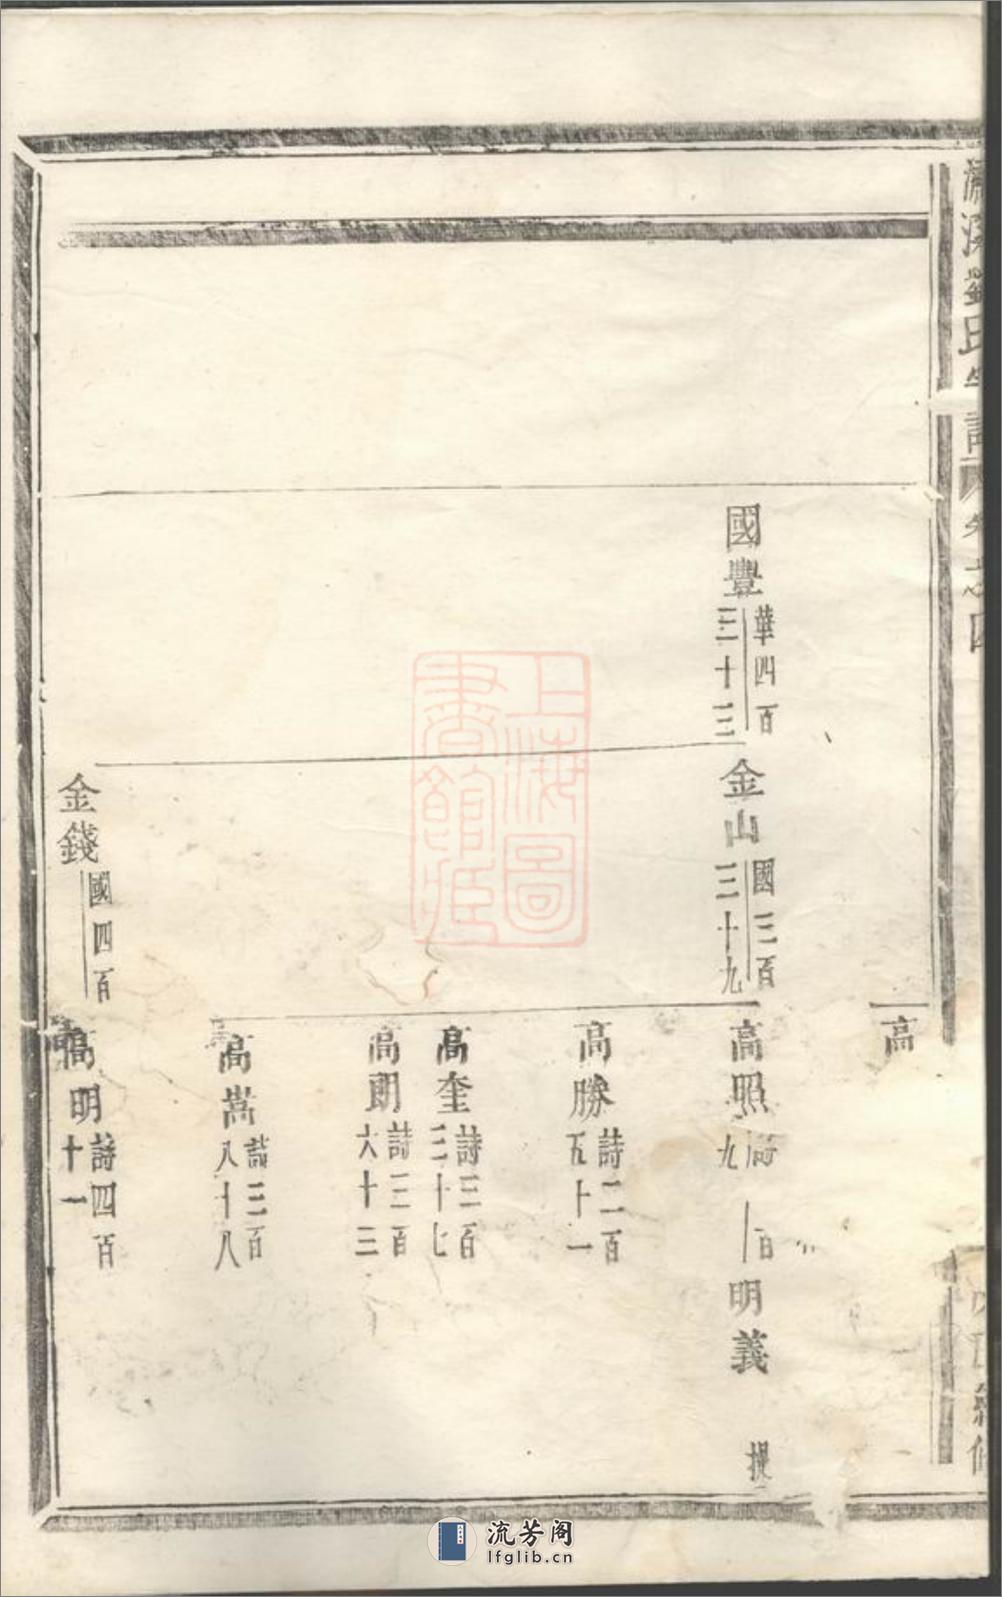 劉氏
卷之四
國豐 華四百三十三
金山 國三百三十九
高
高照
九 百
明義
提
高勝 詩二百五十一
高奎 詩三百三十七
高朗 詩三百六十三
高嵩 詩三百八十八
金錢 國四百
高明 詩四百十一
上海圖書館藏
流芳阁
lfglib.cn